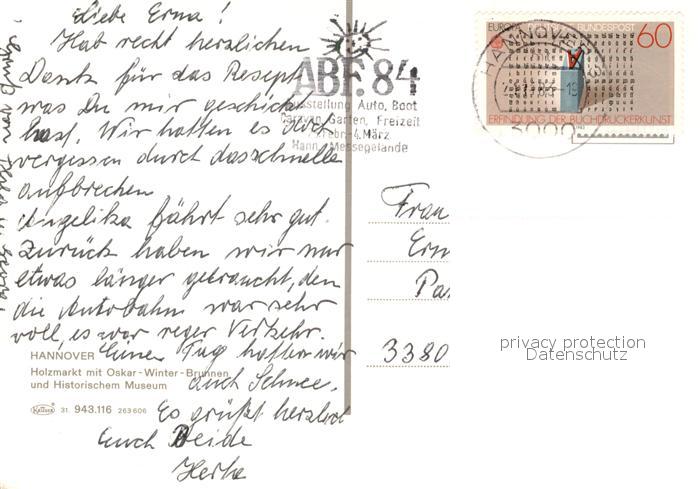 Liebe Erna!
Hab recht herzlichen
Dank für das Rezept
was Du mir geschickt
hast. Wir hatten es doch
vergessen durch das schnelle
aufbrechen
Angelika fährt sehr gut.
Zurück haben wir nur
etwas länger gebraucht, den
die Autobahn war sehr
voll, es war reger Verkehr.
Einen Tag hatten wir
auch Schnee.
Es grüßt herzlich
Euch Beide
Herta
HANNOVER
Holzmarkt mit Oskar-Winter-Brunnen
und Historischem Museum
31. 943.116 263606
ABF. 84
Ausstellung Auto, Boot
Caravan, Garten, Freizeit
Febr.-4. März
Hann. Messegelände
EUROPA DEUTSCHE BUNDESPOST 60
ERFINDUNG DER BUCHDRUCKERKUNST
HANNOVER
3000
Frau
Ern
Pa
3380
privacy protection
Datenschutz